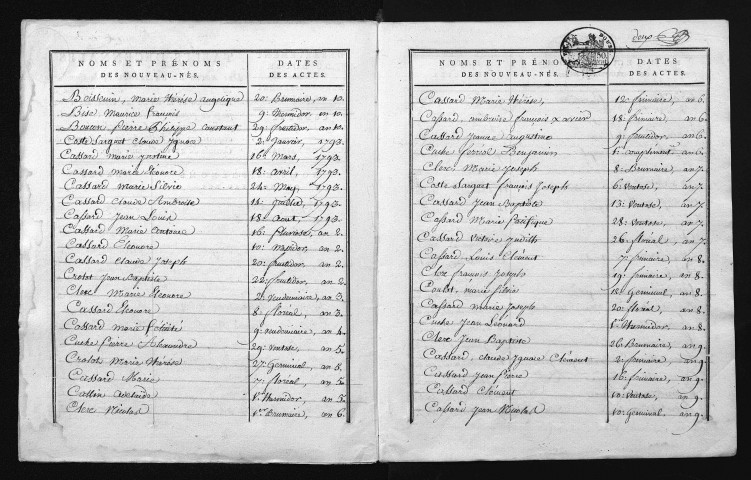 NOMS ET PRÉNOMS DATES
DES NOUVEAU-NÉS. DES ACTES.
Marie Thérèse angélique 20. Brumaire, an 10.
Bise Maurice français 9. Thermidor, an 10.
Pierre Philippe Constant 29. fructidor, an 10.
Coste Sarguet Claude Ignace 2. Janvier, 1793.
Cassard Marie Justine 16. Mars, 1793.
Cassard Marie Eléonore 18. avril, 1793.
Cassard Marie Silvie 24. May, 1793.
Cassard Claude Ambroise 14. Juillet, 1793.
Cassard Jean Louis 18. Aout, 1793.
Cassard Marie Antoine 16. pluviose, an 2.
Cassard Eléonore 10. Messidor, an 2.
Cassard Claude Joseph 20. fructidor, an 2.
Crotot Jean Baptiste 22. fructidor, an 2.
Clerc Marie Eléonore 2. Vendemiaire, an 3.
Cassard Eléonore 8. floréal, an 3.
Cassard Marie Félicité 9. vendemiaire, an 4.
Cuche Pierre Alexandre 29. Ventose, an 5.
Crotot Marie Thérèse 27. Germinal, an 5.
Cassard Marie 7. floréal, an 5.
Cattin adelaide 1er. Thermidor, an 5.
Clerc Nicolas 1er. Brumaire, an 6.
deux
NOMS ET PRÉNOMS DATES
DES NOUVEAU-NÉS. DES ACTES.
Cassard Marie Thérèse, 12. frimaire, an 6.
Cassard ambroise françois xavier 18. frimaire, an 6.
Cassard Jeanne Augustine 9. fructidor, an 6.
Cuche ferréol Benjamin 1er. complément. an 6.
Clerc Marie Joseph 8. Brumaire, an 7.
Coste Sarguet français Joseph 6. Ventose, an 7.
Cassard Jean Baptiste 13. Ventose, an 7.
Cassard Marie Pacifique 28. Ventose, an 7.
Cassard Victoire Judith 26. floréal, an 7.
Cassard Louis Clément 7. frimaire, an 8.
Clerc français Joseph 19. frimaire, an 8.
Marie Silvie 12. Germinal, an 8.
Cassard Marie Joseph 20. floréal, an 8.
Cuche Jean Léonard 1er. Thermidor, an 8.
Clerc Jean Baptiste 26. Brumaire, an 9.
Cassard, Claude Ignace Clément 2. frimaire, an 9.
Cassard Jean Pierre 16. frimaire, an 9.
Cassard Clément 10. Ventose, an 9.
Cassard Jean Nicolas 10. Germinal, an 9.